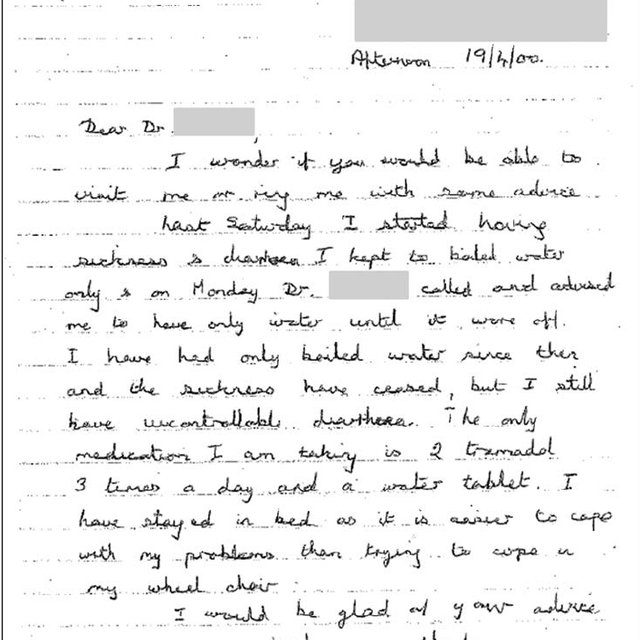 Afternoon 19/4/00.
Dear Dr ,
I wonder if you would be able to
visit me or ring me with some advice
Last Saturday I started having
sickness & diarrhoea I kept to boiled water
only & on Monday Dr. called and advised
me to have only water until it wore off.
I have had only boiled water since then
and the sickness have ceased, but I still
have uncontrollable diarrhoea. The only
medication I am taking is 2 tramadol
3 times a day and a water tablet. I
have stayed in bed as it is easier to cope
with my problems than trying to cope in
my wheel chair
I would be glad of your advice